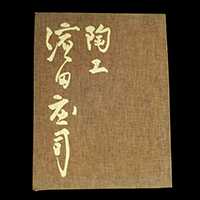 陶工
濱田庄司